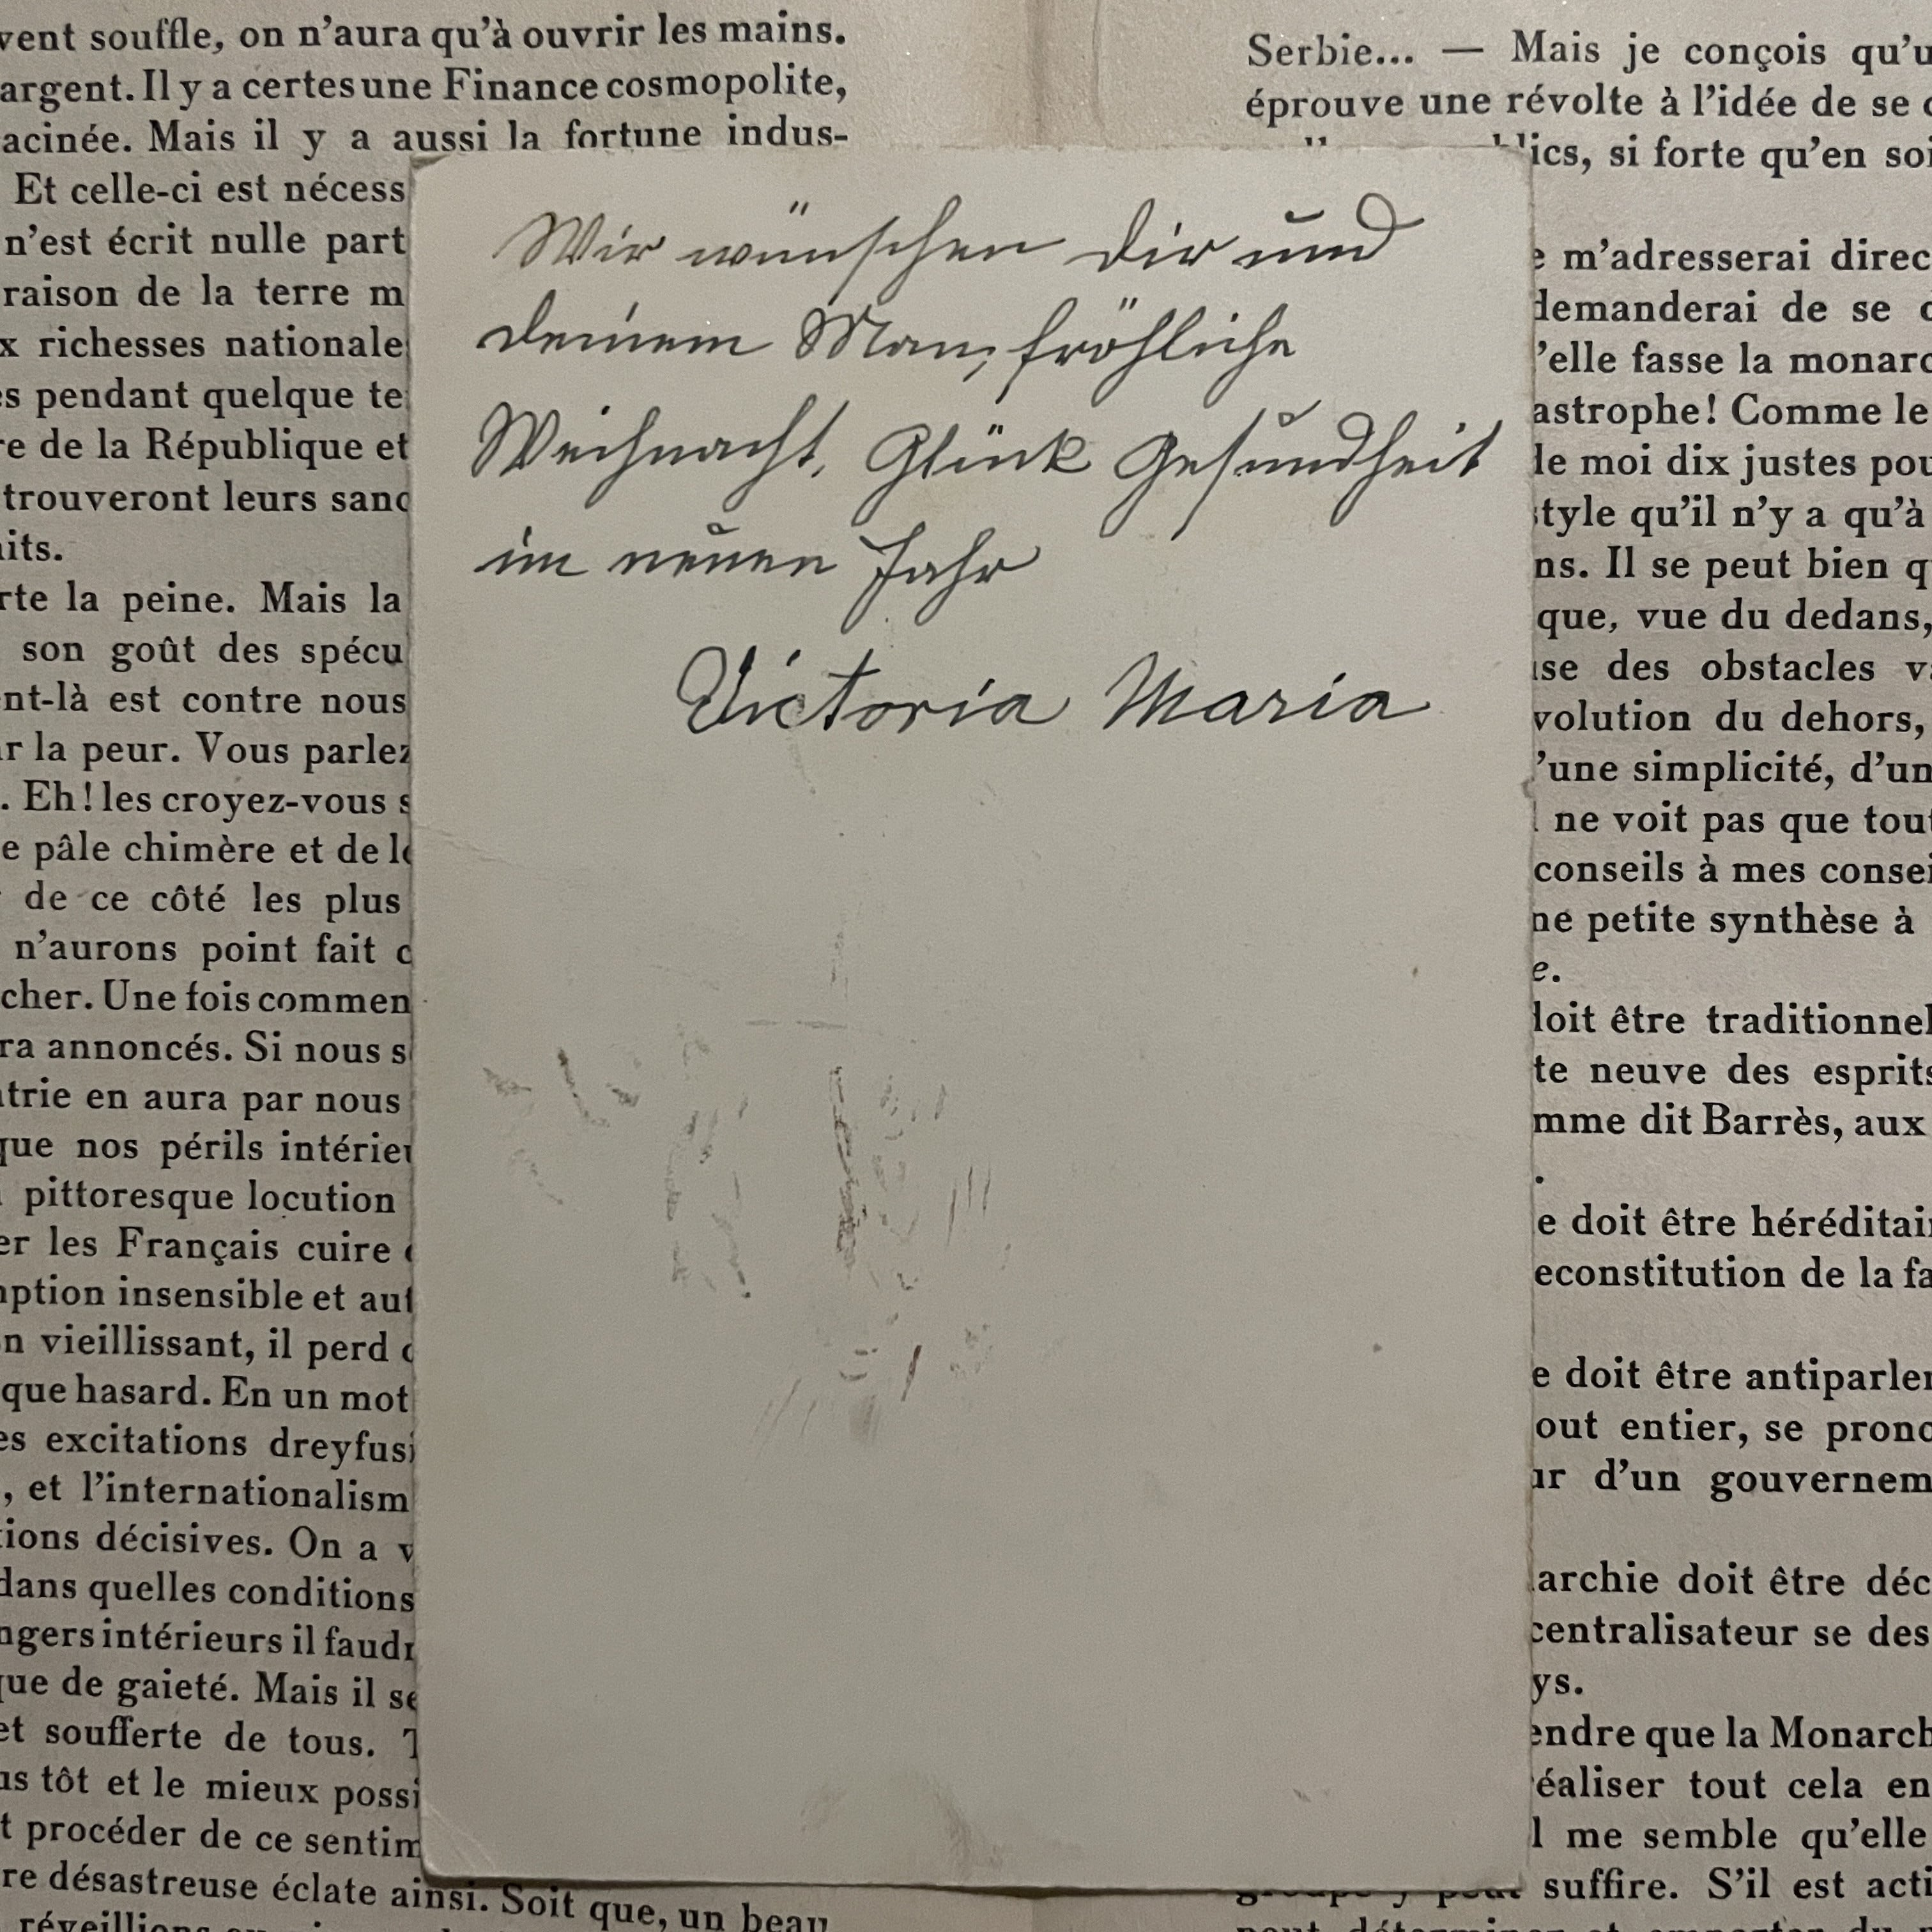 vent souffle, on n'aura qu'à ouvrir les mains.
argent. Il y a certes une Finance cosmopolite,
acinée. Mais il y a aussi la fortune indus-
Et celle-ci est nécess
n'est écrit nulle part
raison de la terre m
x richesses nationale
s pendant quelque te
re de la République et
trouveront leurs sanc
its.
rte la peine. Mais la
son goût des spécu
ent-là est contre nous
r la peur. Vous parlez
. Eh! les croyez-vous s
e pâle chimère et de l
de ce côté les plus
n'aurons point fait c
cher. Une fois commen
ra annoncés. Si nous s
trie en aura par nous
que nos périls intérieu
pittoresque locution
er les Français cuire
ption insensible et aut
n vieillissant, il perd c
que hasard. En un mot
es excitations dreyfusi
, et l'internationalism
tions décisives. On a v
dans quelles conditions
ngers intérieurs il faudr
que de gaieté. Mais il se
et soufferte de tous. T
us tôt et le mieux possi
t procéder de ce sentim
re désastreuse éclate ainsi. Soit que, un beau
Wir wünschen Dir und
deinem Mann fröhliche
Weihnacht, Glück Gesundheit
im neuen Jahr
Victoria Maria
Serbie... — Mais je conçois qu'u
éprouve une révolte à l'idée de se
lics, si forte qu'en soi
e m'adresserai direc
demanderai de se
'elle fasse la monarc
astrophe! Comme le
de moi dix justes pou
style qu'il n'y a qu'à
ns. Il se peut bien q
que, vue du dedans,
use des obstacles va
volution du dehors,
'une simplicité, d'un
l ne voit pas que tout
conseils à mes consei
ne petite synthèse à
e.
doit être traditionnel
te neuve des esprits
mme dit Barrès, aux
.
e doit être héréditair
econstitution de la fa
e doit être antiparlem
out entier, se pronc
ur d'un gouvernem
archie doit être déc
centralisateur se des
ys.
endre que la Monarch
réaliser tout cela en
l me semble qu'elle
suffire. S'il est acti